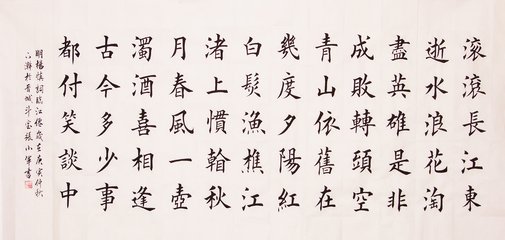 滚滚長江東
逝水浪花淘
盡英雄是非
成敗轉頭空
青山依舊在
幾度夕陽紅
白髮漁樵江
渚上慣看秋
月春風一壺
濁酒喜相逢
古今多少事
都付笑談中
明楊慎詞臨江僊歲在庚寅仲秋
於晉城斗室張小軍書